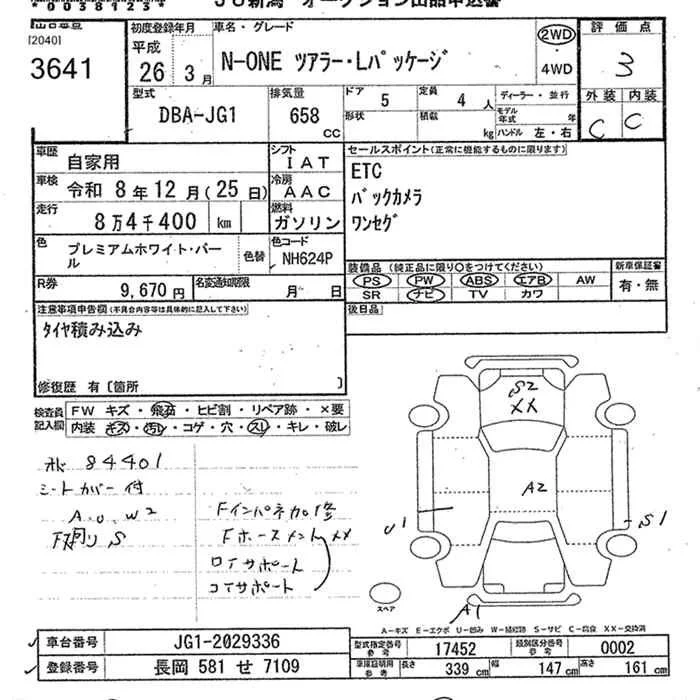 *00381234*
JU新潟 オークション出品申込書
[2040]
3641
初度登録年月
平成
26 3月
車名・グレード
N-ONE ツアラー・Lパッケージ
2WD
・
4WD
評価点
3
外装 内装
C C
型式
DBA-JG1
排気量
658
cc
ドア 5
定員 4 人
形状
積載 kg
ディーラー・並行
モデル年式 年
ハンドル 左・右
車歴 自家用
車検 令和 8年12月(25日)
走行 8万4千400 km
シフト
IAT
冷房
AAC
燃料
ガソリン
セールスポイント(正常に機能するものに限ります)
ETC
バックカメラ
ワンセグ
色 プレミアムホワイト・パール
色替
色コード
NH624P
R券 9,670円
名変通知期限 月 日
装備品 (純正品に限り○をつけてください)
PS PW ABS エアB AW
SR ナビ TV カワ
新車保証書
有・無
注意事項申告欄(不具合内容等は具体的に記入して下さい)
タイヤ積み込み
後日品
修復歴 有〔箇所 〕
検査員記入欄
FW キズ・飛石・ヒビ割・リペア跡・×要
内装 キズ・汚レ・コゲ・穴・スレ・キレ・破レ
84401
シートカバー付
A.U.W2
下廻リ S
Fインパネ加修
Fホースメント××
ロアサポート
コアサポート
S2
XX
A2
U1
S1
A1
スペア
A-キズ E-エクボ U-凹み W-補修跡 S-サビ C-腐食 XX-交換済
車台番号 JG1-2029336
登録番号 長岡 581 せ 7109
型式指定番号
参考
17452
類別区分番号
参考
0002
車庫証明用
参考
長さ 339 cm
幅 147 cm
高さ 161 cm